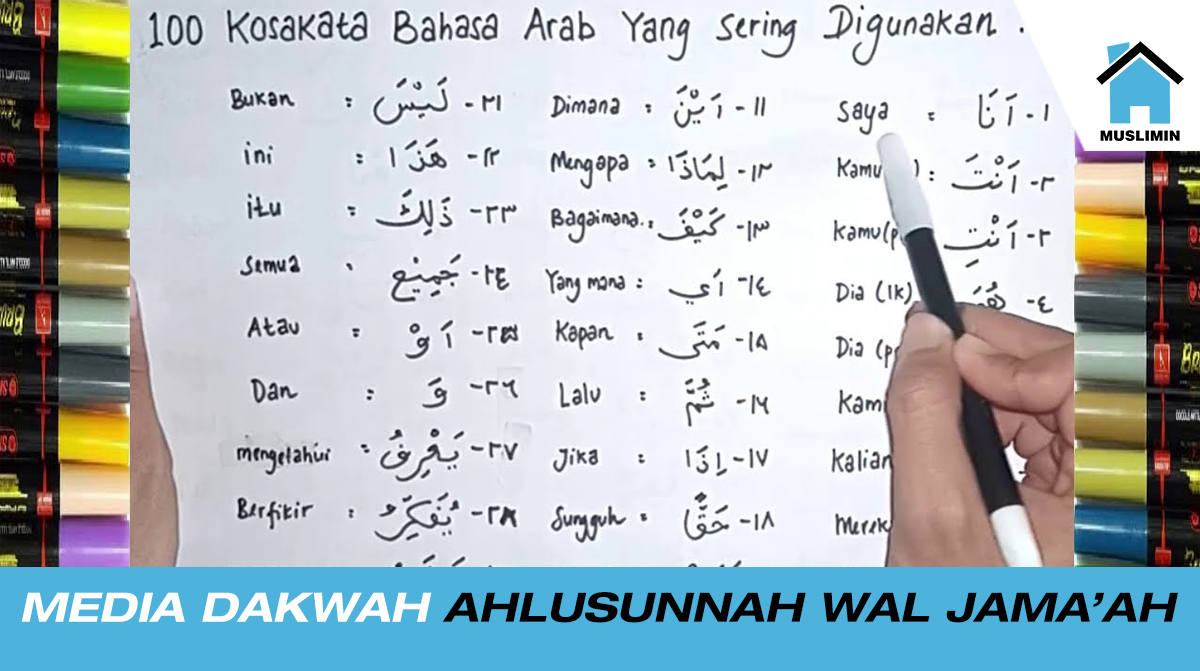 100 Kosakata Bahasa Arab Yang Sering Digunakan.
MUSLIMIN
Saya : اَنَا -١
Kamu : اَنْتَ -٢
Kamu (p : اَنْتِ -٣
Dia (lk) -٤
Dia (p
Kami
Kalian
Merek
Dimana : اَيْنَ -١١
Mengapa : لِمَاذَا -١٢
Bagaimana.. : كَيْفَ -١٣
Yang mana : اَي -١٤
Kapan : مَتَى -١٥
Lalu : ثُمَّ -١٦
Jika : اِذَا -١٧
Sungguh : حَقًّا -١٨
Bukan : لَيْسَ -٢١
ini : هَذَا -٢٢
itu : ذَلِكَ -٢٣
Semua : جَمِيْع -٢٤
Atau : اَوْ -٢٥
Dan : وَ -٢٦
mengetahui : يَعْرِفُ -٢٧
Berfikir : يُفَكِّرُ -٢٨
MEDIA DAKWAH AHLUSUNNAH WAL JAMA'AH